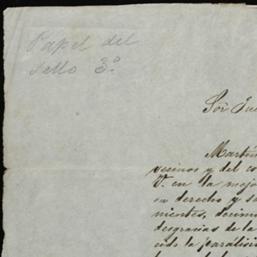 Papel del
sello 3º.
Sor Jue
Martin
vecinos y del co
V. en la mejo
en derecho y
nientes, decimo
desgracias de la
cede la paralisi